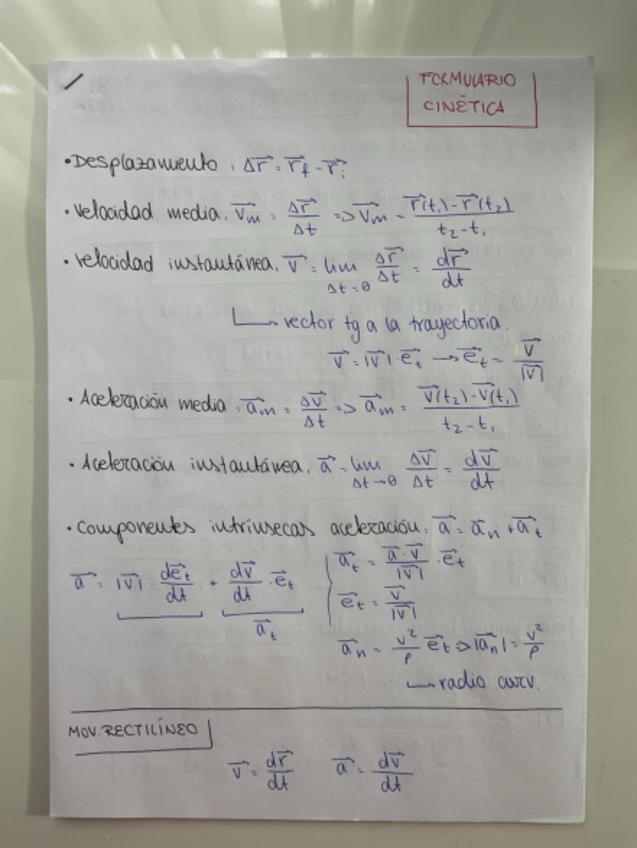 FORMULARIO
CINÉTICA
• Desplazamiento: Δr⃗ = r⃗f - r⃗i
• Velocidad media: v⃗m = Δr⃗/Δt => v⃗m = (r⃗(t₁) - r⃗(t₂))/(t₂ - t₁)
• Velocidad instantánea: v⃗ = lim Δt=0 Δr⃗/Δt = dr⃗/dt
↳ vector tg a la trayectoria.
v⃗ = |v⃗| · e⃗t → e⃗t = v⃗/|v⃗|
• Aceleración media: a⃗m = Δv⃗/Δt => a⃗m = (v⃗(t₂) - v⃗(t₁))/(t₂ - t₁)
• Aceleración instantánea: a⃗ = lim Δt→0 Δv⃗/Δt = dv⃗/dt
• Componentes intrínsecas aceleración: a⃗ = a⃗n + a⃗t
a⃗ = |v⃗| · de⃗t/dt + dv⃗/dt · e⃗t
a⃗t
a⃗t = (a⃗ · v⃗)/|v⃗| · e⃗t
e⃗t = v⃗/|v⃗|
a⃗n = v²/ρ e⃗t => |a⃗n| = v²/ρ
↳ radio curv.
MOV. RECTILÍNEO
v⃗ = dr⃗/dt a⃗ = dv⃗/dt